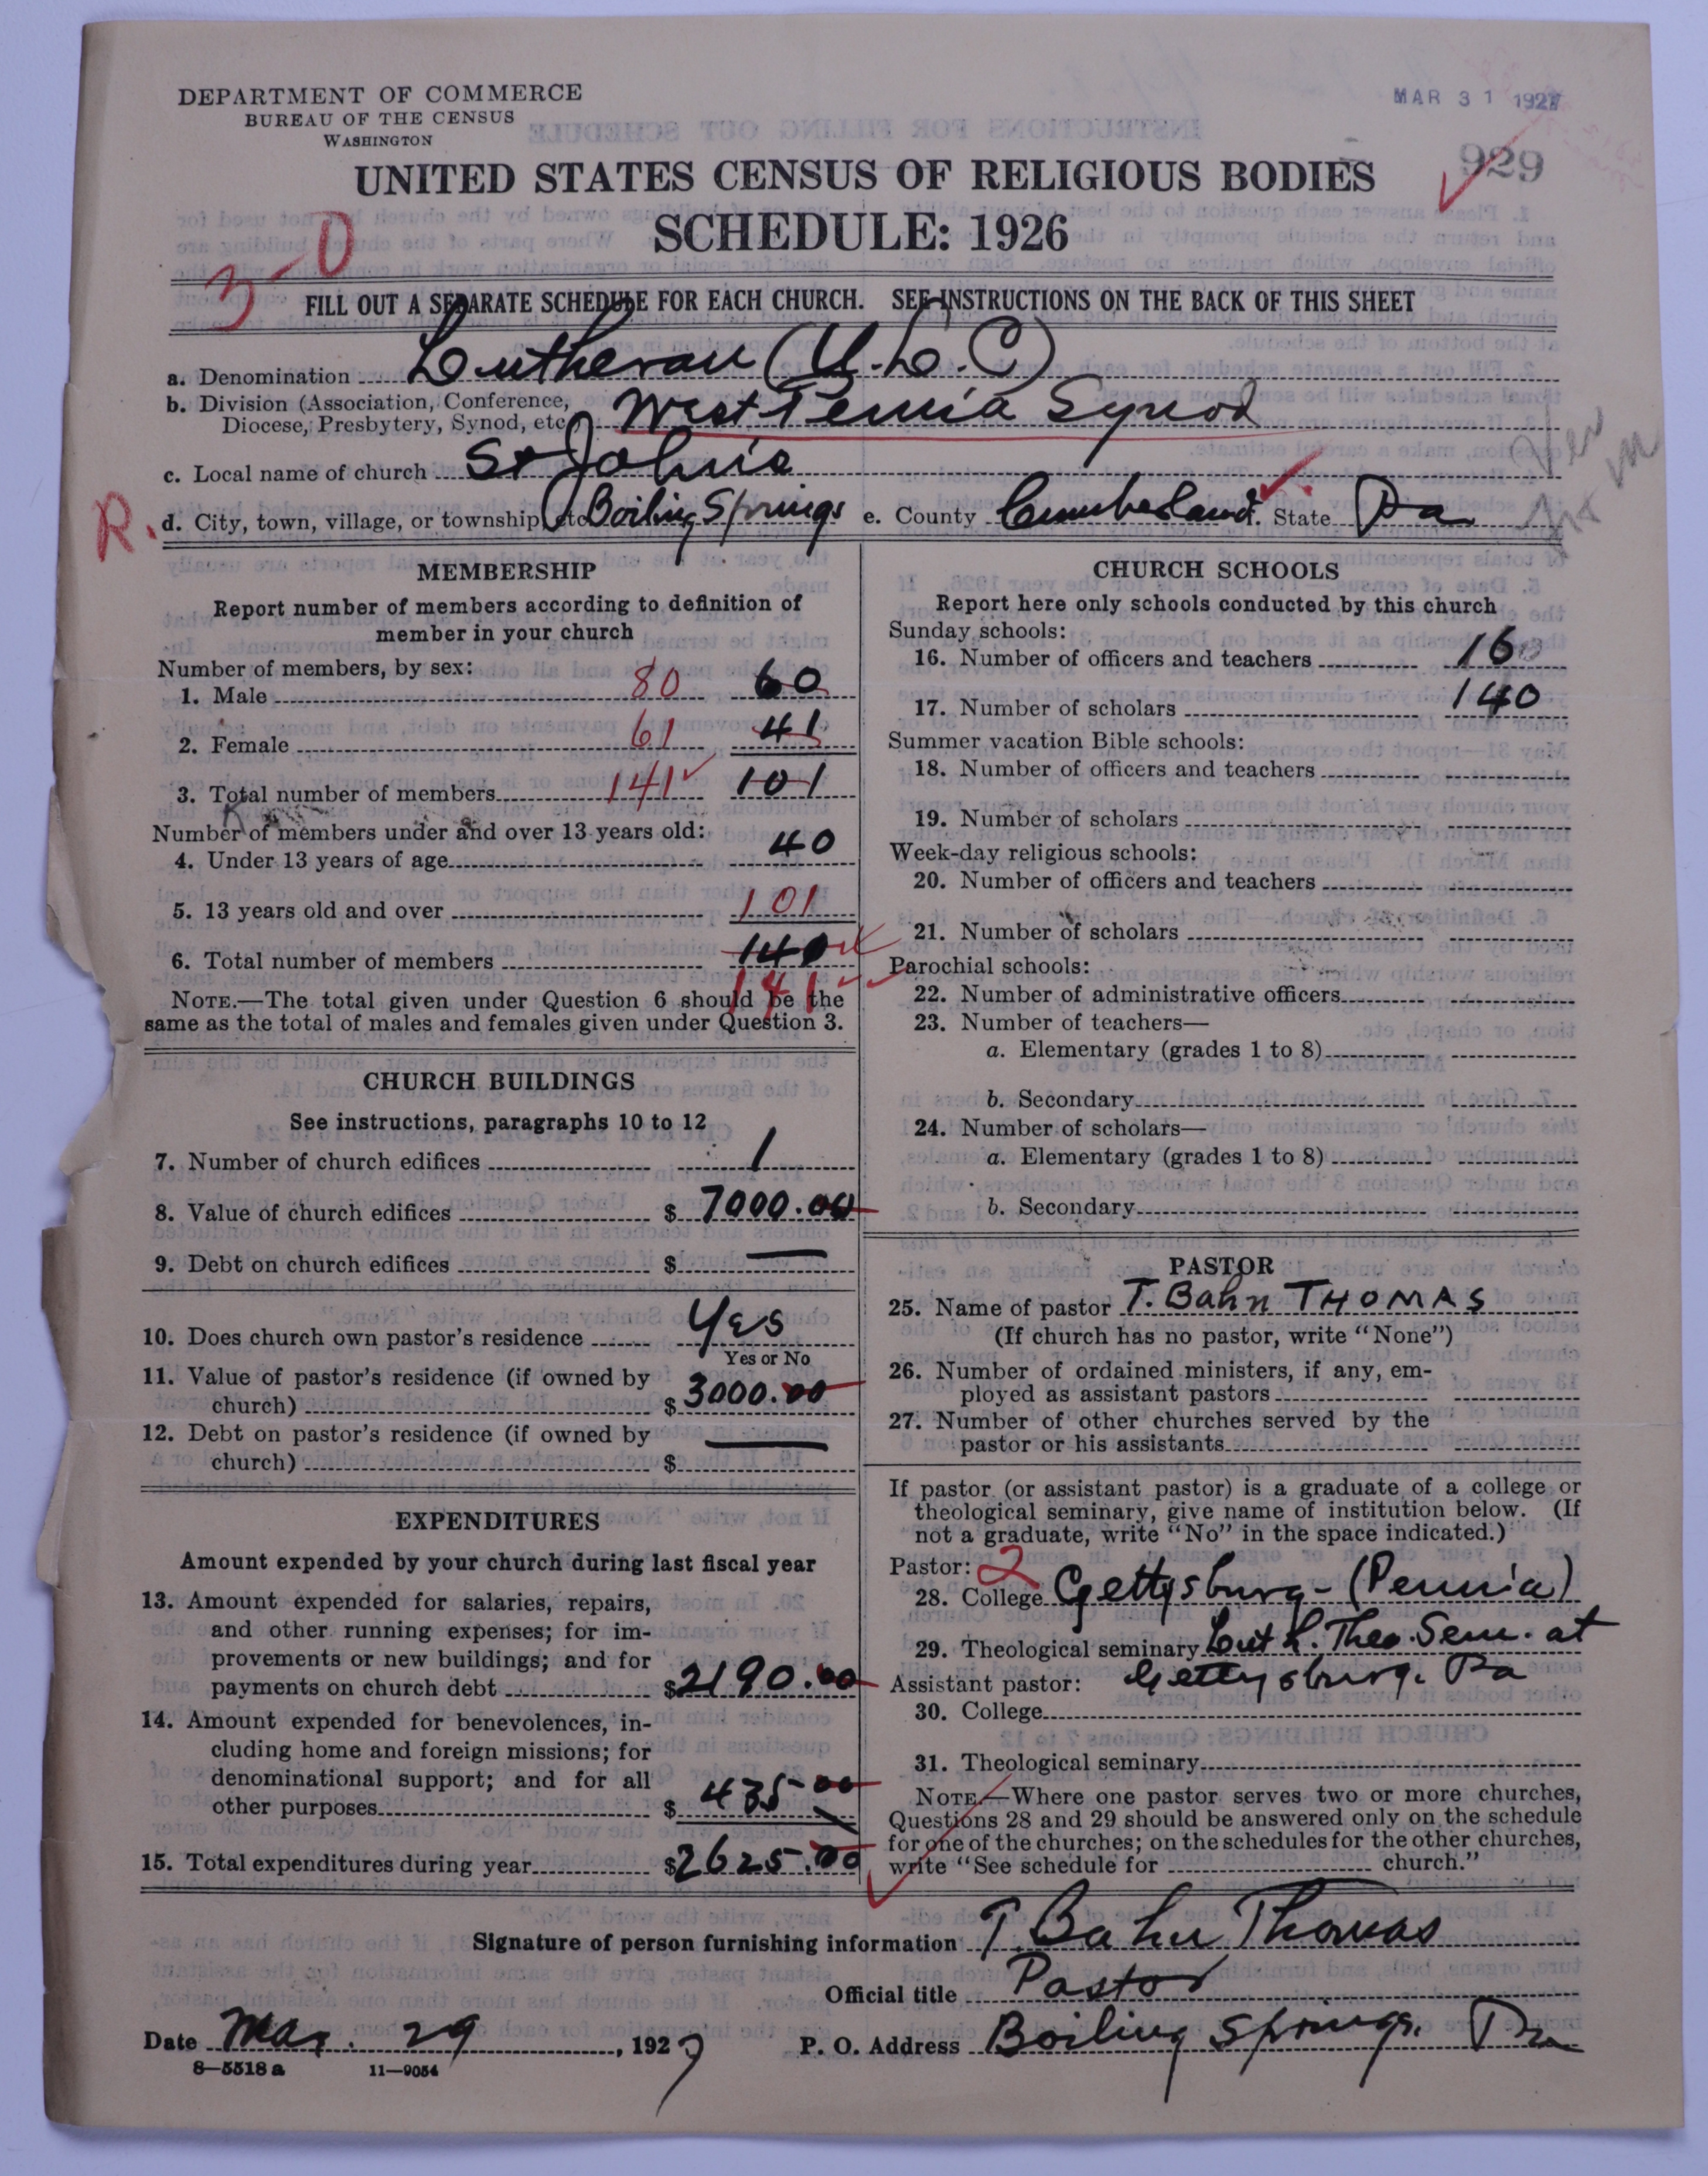 DEPARTMENT OF COMMERCE
BUREAU OF THE CENSUS
WASHINGTON
MAR 31 1927
929
UNITED STATES CENSUS OF RELIGIOUS BODIES
SCHEDULE: 1926
3-0
FILL OUT A SEPARATE SCHEDULE FOR EACH CHURCH. SEE INSTRUCTIONS ON THE BACK OF THIS SHEET
a. Denomination Lutheran (U.L.C)
b. Division (Association, Conference,
Diocese, Presbytery, Synod, etc.) West Penn'a Synod
c. Local name of church St John's
R.
d. City, town, village, or township, etc Boiling Springs e. County Cumberland f. State Pa
MEMBERSHIP
Report number of members according to definition of
member in your church
Number of members, by sex:
1. Male 80 60
2. Female 61 41
3. Total number of members 141 101
Number of members under and over 13 years old:
4. Under 13 years of age 40
5. 13 years old and over 101
6. Total number of members 140
141
NOTE.—The total given under Question 6 should be the
same as the total of males and females given under Question 3.
CHURCH BUILDINGS
See instructions, paragraphs 10 to 12
7. Number of church edifices 1
8. Value of church edifices $ 7000.00
9. Debt on church edifices $ —
10. Does church own pastor's residence Yes
Yes or No
11. Value of pastor's residence (if owned by
church) $ 3000.00
12. Debt on pastor's residence (if owned by
church) $ —
EXPENDITURES
Amount expended by your church during last fiscal year
13. Amount expended for salaries, repairs,
and other running expenses; for im-
provements or new buildings; and for
payments on church debt $ 2190.00
14. Amount expended for benevolences, in-
cluding home and foreign missions; for
denominational support; and for all
other purposes $ 435.00
15. Total expenditures during year $ 2625.00
CHURCH SCHOOLS
Report here only schools conducted by this church
Sunday schools:
16. Number of officers and teachers 16
17. Number of scholars 140
Summer vacation Bible schools:
18. Number of officers and teachers
19. Number of scholars
Week-day religious schools:
20. Number of officers and teachers
21. Number of scholars
Parochial schools:
22. Number of administrative officers
23. Number of teachers—
a. Elementary (grades 1 to 8)
b. Secondary
24. Number of scholars—
a. Elementary (grades 1 to 8)
b. Secondary
PASTOR
25. Name of pastor T. Bahn THOMAS
(If church has no pastor, write "None")
26. Number of ordained ministers, if any, em-
ployed as assistant pastors
27. Number of other churches served by the
pastor or his assistants
If pastor (or assistant pastor) is a graduate of a college or
theological seminary, give name of institution below. (If
not a graduate, write "No" in the space indicated.)
Pastor: 2
28. College Gettysburg - (Penn'a)
29. Theological seminary Luth. Theo. Sem. at
Assistant pastor: Gettysburg. Pa
30. College
31. Theological seminary
NOTE.—Where one pastor serves two or more churches,
Questions 28 and 29 should be answered only on the schedule
for one of the churches; on the schedules for the other churches,
write "See schedule for church."
Signature of person furnishing information T. Bahn Thomas
Official title Pastor
Date Mar. 29, 1927 P. O. Address Boiling Springs. Pa
8—5518a 11—9054